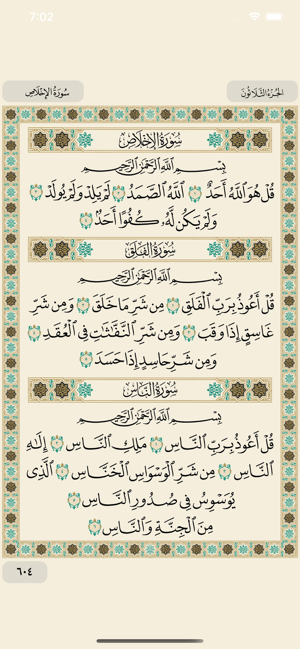 7:02
سُورَةُ الإِخْلَاصِ
الجُزْءُ الثَّلَاثُونَ
سُورَةُ الإِخْلَاصِ
بِسْمِ ٱللَّهِ ٱلرَّحْمَٰنِ ٱلرَّحِيمِ
قُلْ هُوَ ٱللَّهُ أَحَدٌ ١ ٱللَّهُ ٱلصَّمَدُ ٢ لَمْ يَلِدْ وَلَمْ يُولَدْ ٣
وَلَمْ يَكُن لَّهُۥ كُفُوًا أَحَدٌۢ ٤
سُورَةُ الفَلَقِ
بِسْمِ ٱللَّهِ ٱلرَّحْمَٰنِ ٱلرَّحِيمِ
قُلْ أَعُوذُ بِرَبِّ ٱلْفَلَقِ ١ مِن شَرِّ مَا خَلَقَ ٢ وَمِن شَرِّ
غَاسِقٍ إِذَا وَقَبَ ٣ وَمِن شَرِّ ٱلنَّفَّٰثَٰتِ فِي ٱلْعُقَدِ ٤
وَمِن شَرِّ حَاسِدٍ إِذَا حَسَدَ ٥
سُورَةُ النَّاسِ
بِسْمِ ٱللَّهِ ٱلرَّحْمَٰنِ ٱلرَّحِيمِ
قُلْ أَعُوذُ بِرَبِّ ٱلنَّاسِ ١ مَلِكِ ٱلنَّاسِ ٢ إِلَٰهِ
ٱلنَّاسِ ٣ مِن شَرِّ ٱلْوَسْوَاسِ ٱلْخَنَّاسِ ٤ ٱلَّذِي
يُوَسْوِسُ فِي صُدُورِ ٱلنَّاسِ ٥
مِنَ ٱلْجِنَّةِ وَٱلنَّاسِ ٦
٦٠٤